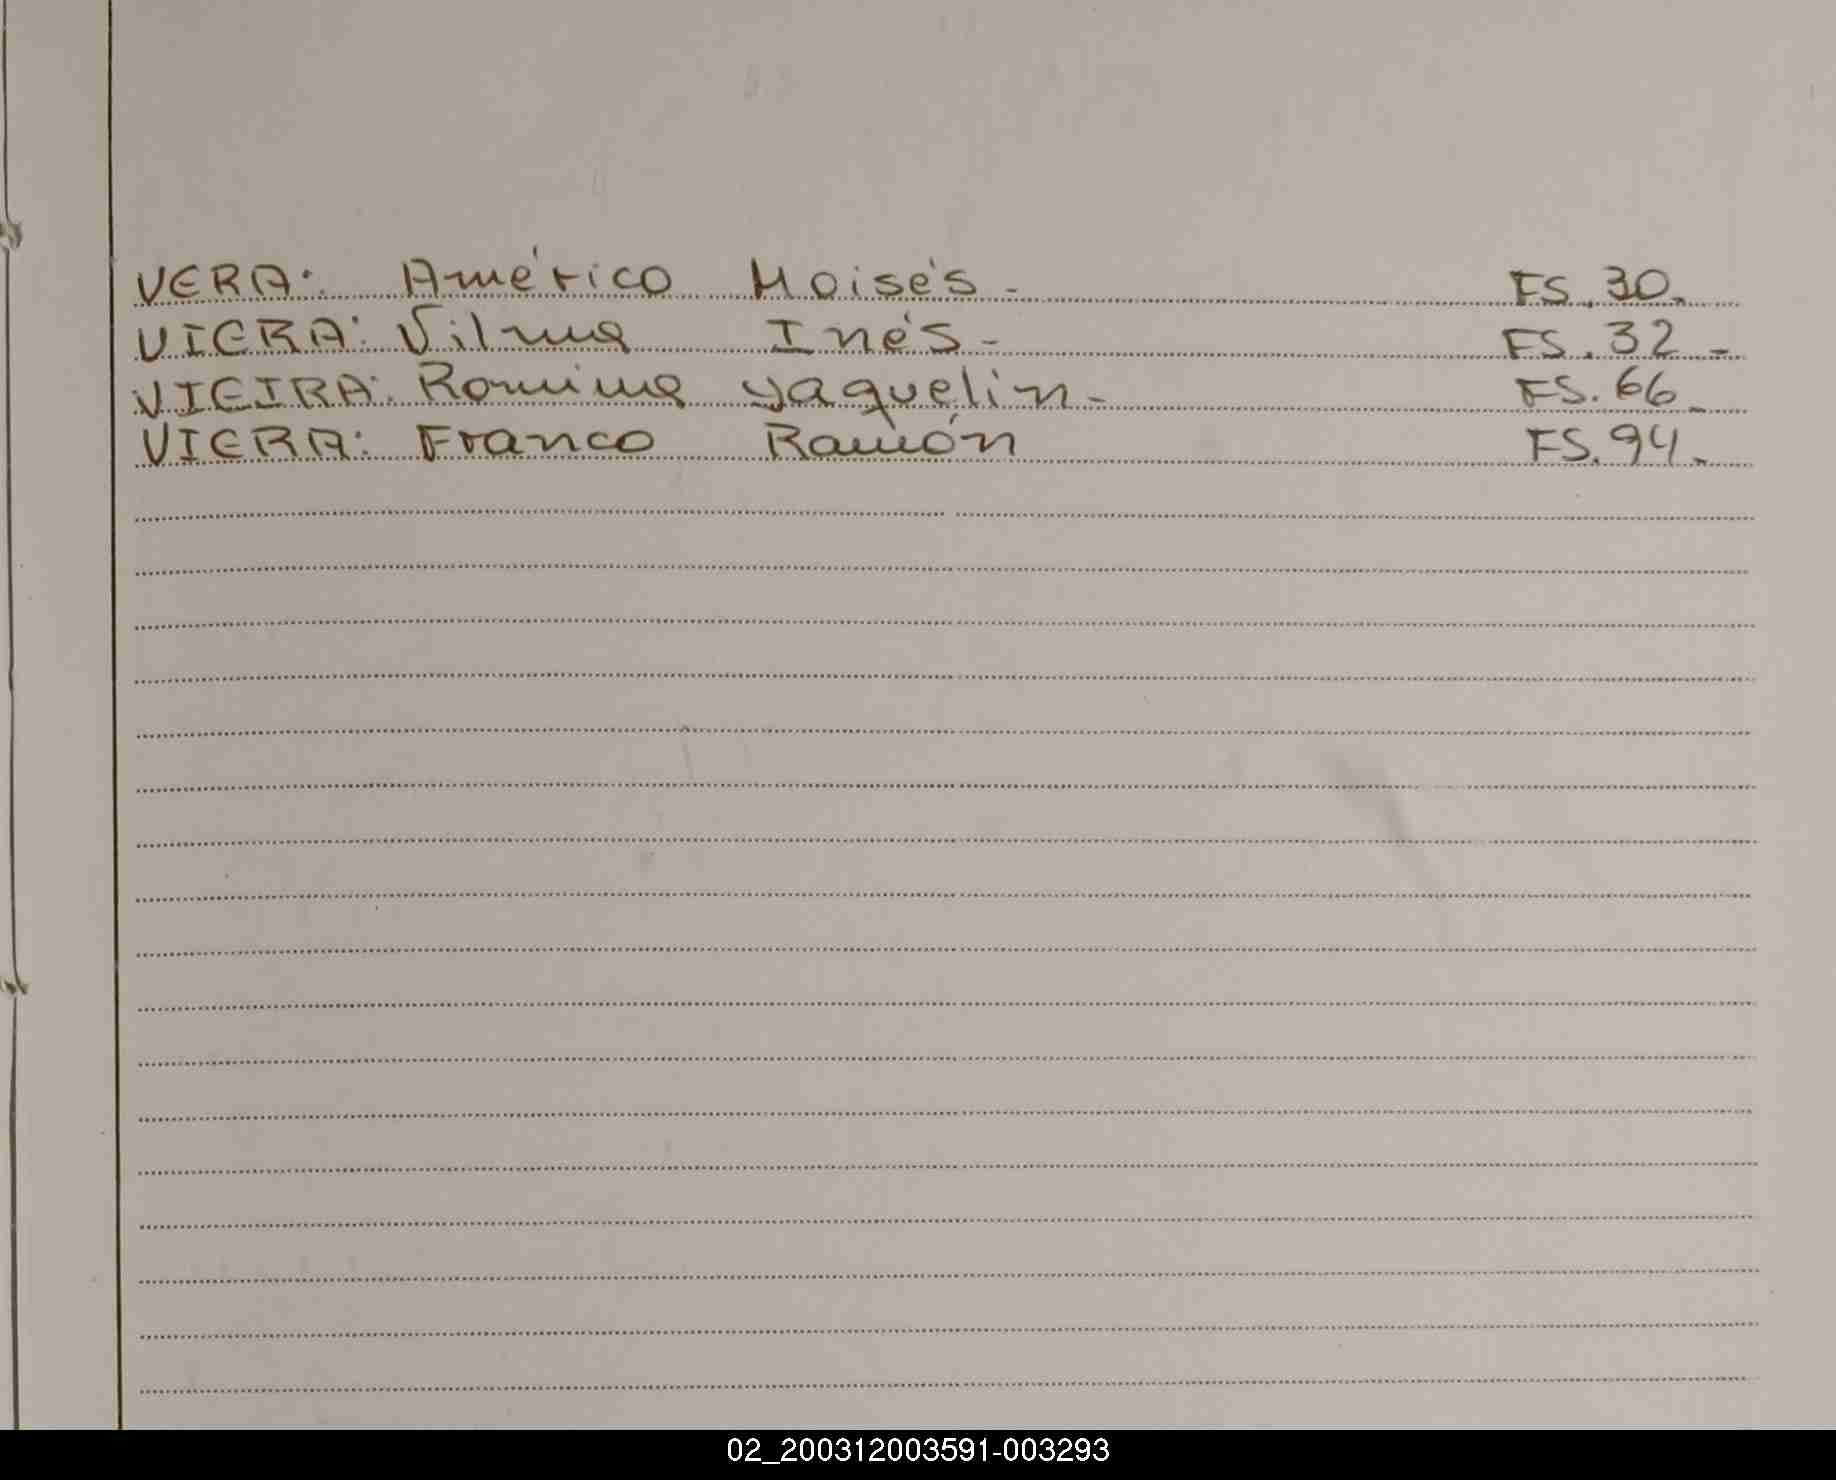 VERA: Américo Moisés- FS.30.
VIERA: Vilma Inés- FS.32-
VIEIRA: Romina Yaquelin- FS.66-
VIERA: Franco Ramón FS.94.
02_200312003591-003293